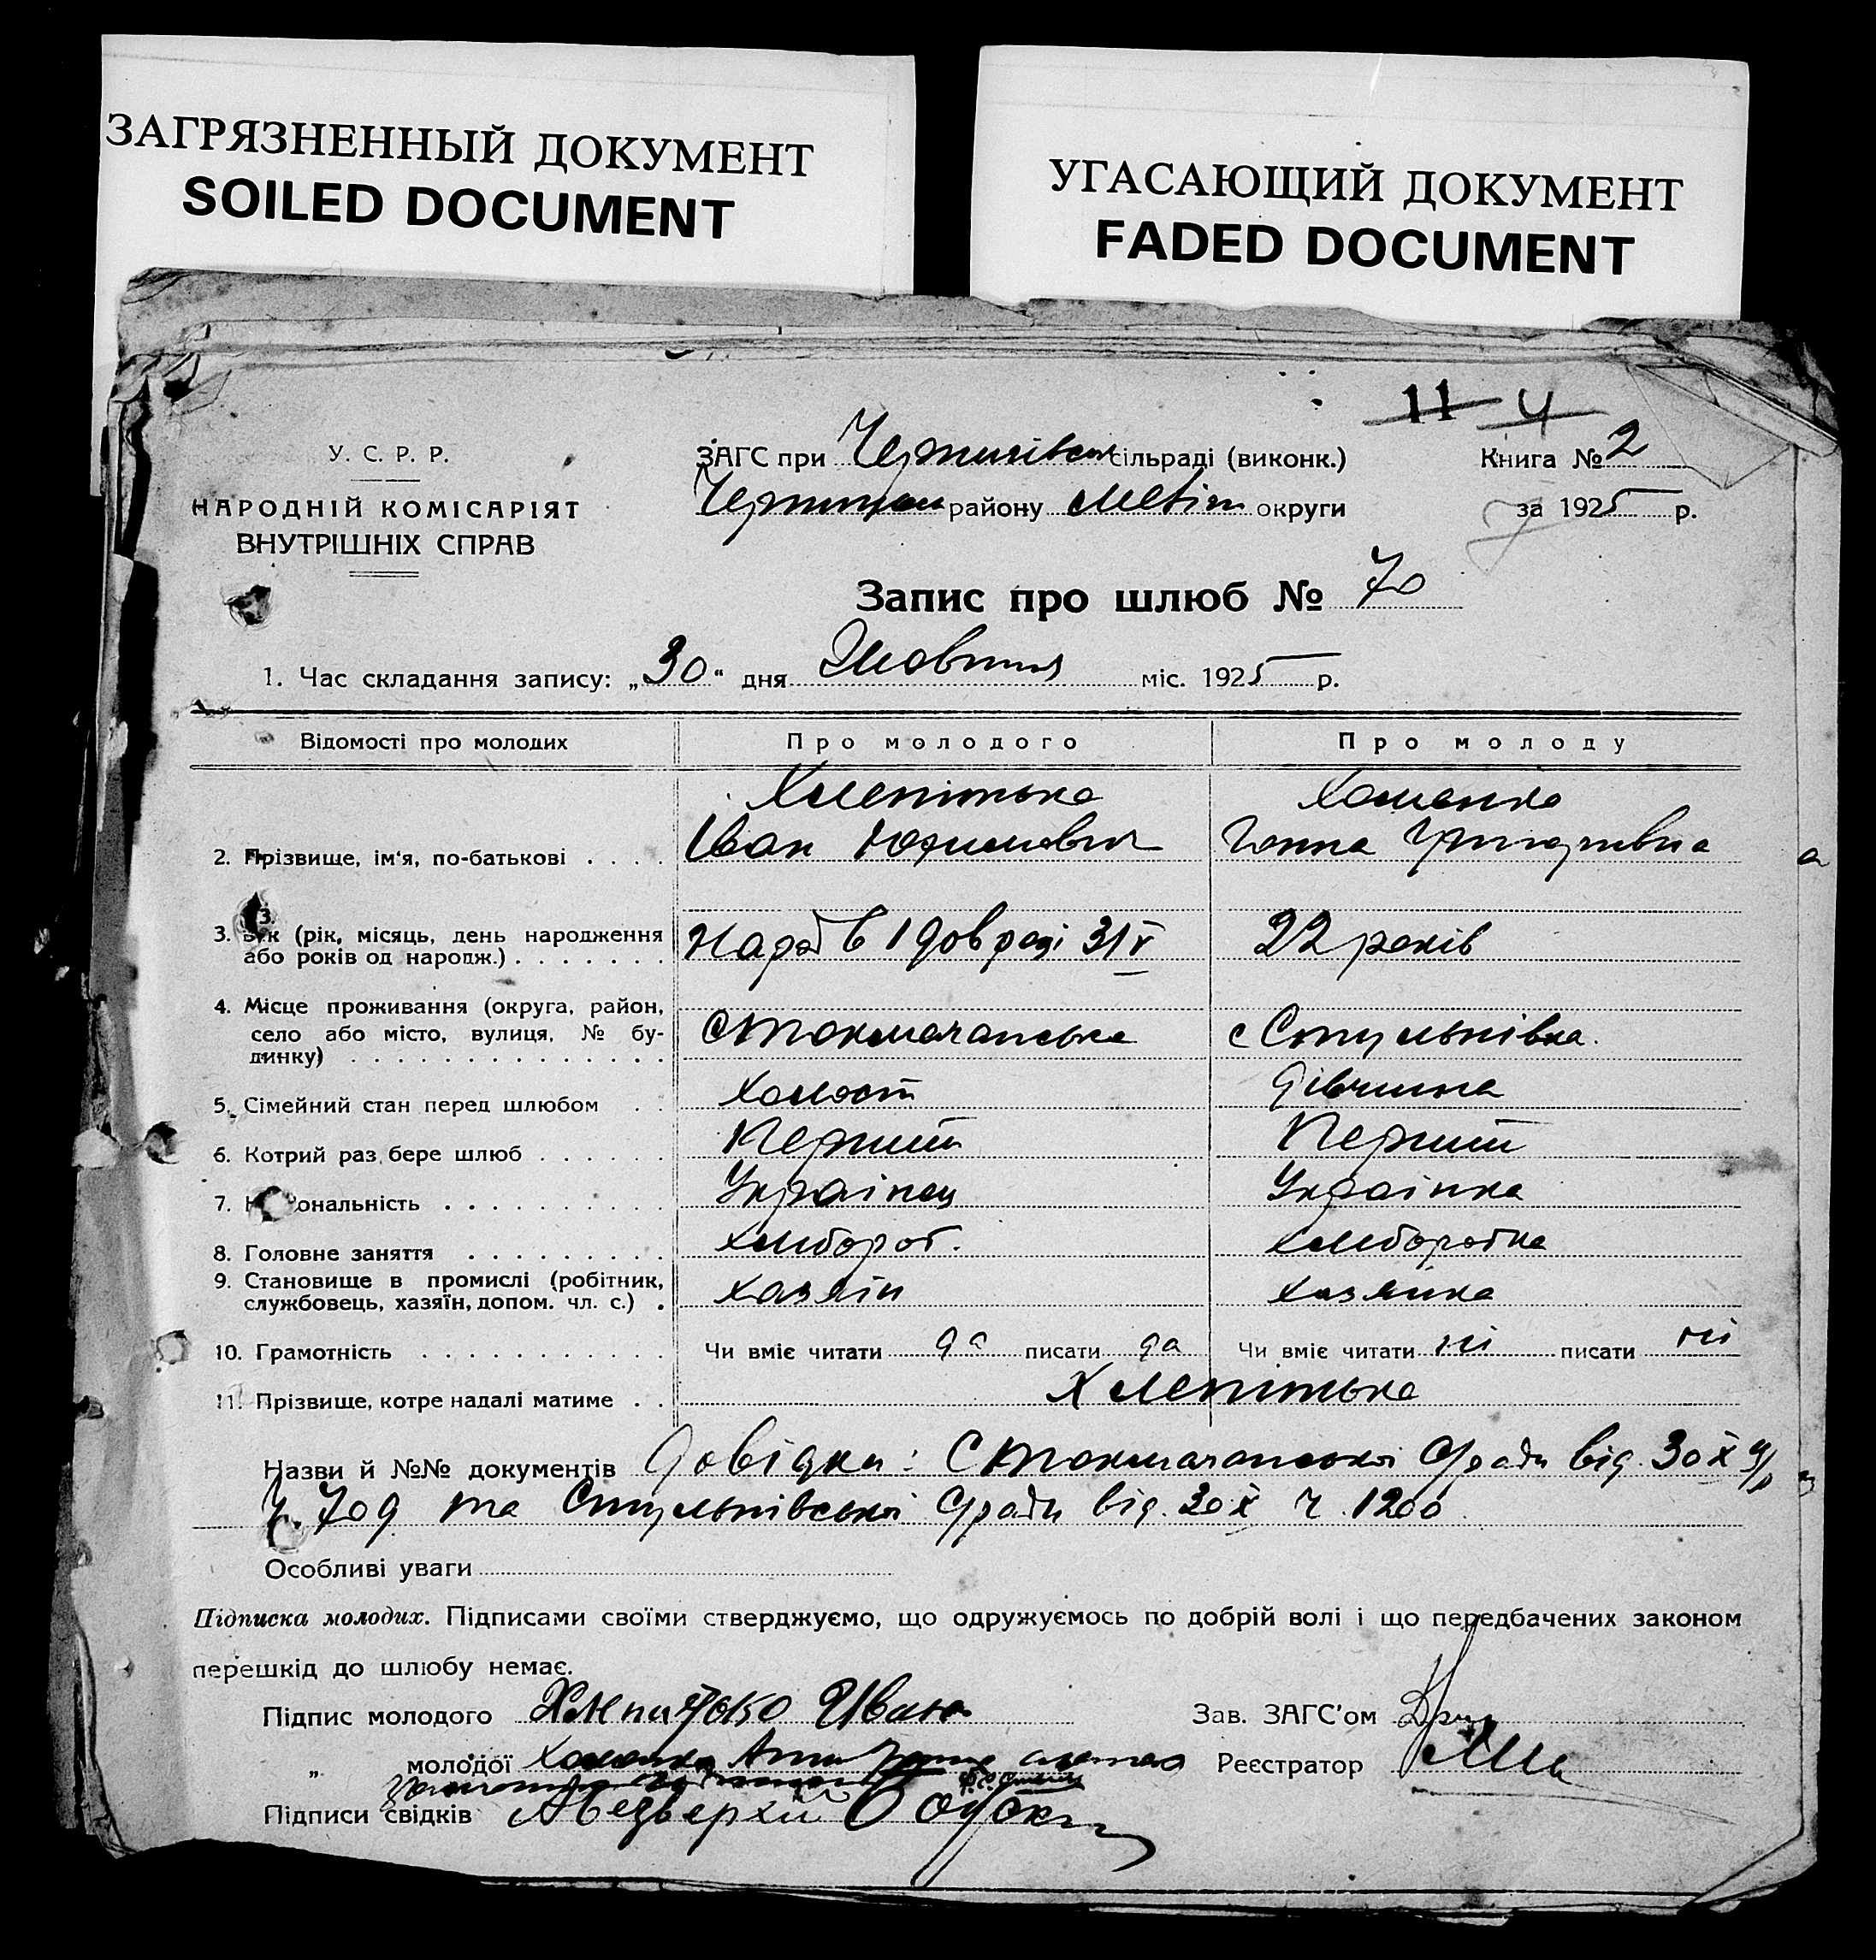 ЗАГРЯЗНЕННЫЙ ДОКУМЕНТ
SOILED DOCUMENT
УГАСАЮЩИЙ ДОКУМЕНТ
FADED DOCUMENT
11 4
У. С. Р. Р.
НАРОДНІЙ КОМІСАРІЯТ
ВНУТРІШНІХ СПРАВ
ЗАГС при Чернигівськ сільраді (виконк.)
району Меліт округи
Книга № 2
за 1925 р.
Запис про шлюб № 70
1. Час складання запису: „30“ дня Жовтня міс. 1925 р.
Відомості про молодих Про молодого Про молоду
Хоменко
2. Прізвище, ім'я, по-батькові . . . . Іван Юхимович Ганна Григоривна
3. Вік (рік, місяць, день народження
або років од народж.) . . . . . . . 31 V 22 років
4. Місце проживання (округа, район,
село або місто, вулиця, № бу-
динку) с Токмачанська с Стульнівка.
5. Сімейний стан перед шлюбом . . холост дівчина
6. Котрий раз бере шлюб . . . . . . Перший Перший
7. Національність . . . . . . . . . . Українец Українка
8. Головне заняття . . . . . . . . . хлібороб. хліборобка
9. Становище в промислі (робітник,
службовець, хазяїн, допом. чл. с.) . хазяін хазяйка
10. Грамотність . . . . . . . . . . . Чи вміє читати да писати да Чи вміє читати ні писати ні
11. Прізвище, котре надалі матиме . .
Назви й №№ документів Довідки: С Токмачанської С/ради від. 30 X ц/р
ч. 709 та Стульнівської С/ради від. 30 X ч. 1200
Особливі уваги
Підписка молодих. Підписами своїми стверджуємо, що одружуємось по добрій волі і що передбачених законом
перешкід до шлюбу немає.
Підпис молодого Иван Зав. ЗАГС'ом
„ молодої Хоменко Анна Реєстратор
Підписи свідків